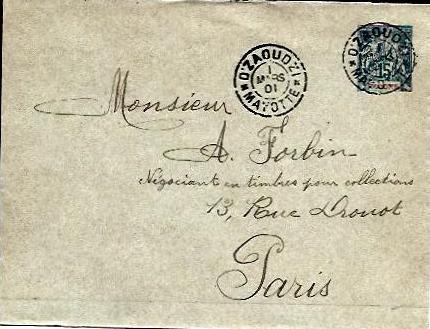 D'ZAOUDZI
1
MARS
01
MAYOTTE
D'ZAOUDZI
15
Monsieur
A. Forbin
Négociant en timbres pour collections
13, Rue Drouot
Paris